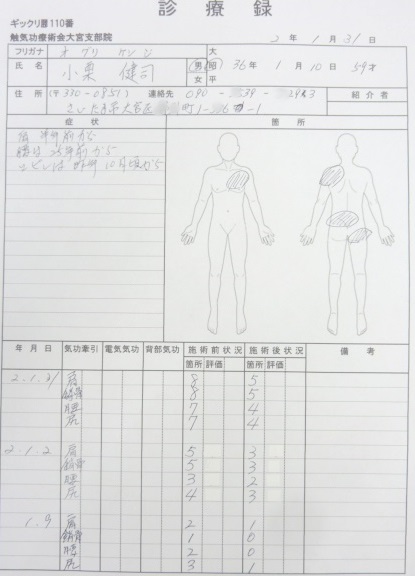 診療録
ギックリ腰110番
触気功療術会大宮支部院
2年 1月 31日
フリガナ オグリ ケンジ
氏名 小栗 健司 男 女 大 昭 平 36年 1月 10日 59才
住所 (〒330-0851) 連絡先 090- 39- 3 紹介者
さいたま市大宮区 町1- -1
症状 箇所
肩 半年前から
腰は 25年前から
10月頃から
年月日 気功牽引 電気気功 背部気功 施術前状況 施術後状況 備考
箇所 評価 箇所 評価
2.1.31 肩 8 5
鎖骨 8 5
腰 7 4
尻 7 4
2.1.2 肩 5 3
鎖骨 5 3
腰 3 2
尻 4 3
1.9 肩 2 1
鎖骨 1 0
腰 2 0
尻 3 1